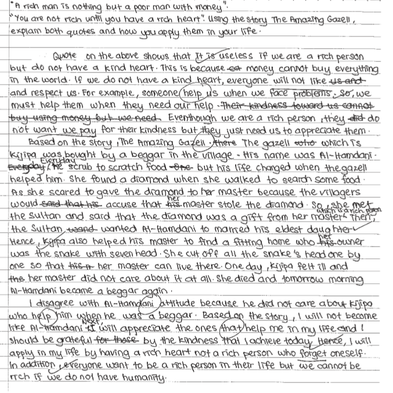 "A rich man is nothing but a poor man with money".
"You are not rich until you have a rich heart". Using the story The Amazing Gazell,
explain both quotes and how you apply them in your life.
Quote on the above shows that it is useless if we are a rich person
but do not have a kind heart. This is because money cannot buy everything
in the world. If we do not have a kind heart, everyone will not like us and
and respect us. For example, someone help us when we face problems. So, we
must help them when they need our help. Their kindness toward us cannot
buy using money but we need. Eventhough we are a rich person, they did do
not want we pay for their kindness but they just need us to appreciate them.
Based on the story, The Amazing Gazell, there The gazell who which is
Kijipa was bought by a beggar in the village. His name was Al-Hamdani.
Everyday, he scrub to scratch food but his life changed when the gazell
helped him. She found a diamond when she walked to search some food
As she scared to gave the diamond to her master because the villagers
would said that his accuse that her master stole the diamond. So, she met
the Sultan and said that the diamond was a gift from her master which is a rich person. Then,
the Sultan wanted Al-Hamdani to married his eldest daughter
Hence, Kijipa also helped his master to find a fitting home who his owner
was the snake with seven head. She cut off all the snake's head one by
one so that his her master can live there. One day, Kijipa felt ill and
the her master did not care about it at all. She died and tomorrow morning
Al-Hamdani become a beggar again.
I disagree with Al-Hamdani attitude because he did not care about Kijipa
who help him when he was a beggar. Based on the story, I will not become
like Al-Hamdani. I will appreciate the ones that help me in my life and I
should be grateful for those by the kindness that I achieve today. Hence, I will
apply in my life by having a rich heart not a rich person who forget oneself.
In addition, everyone want to be a rich person in their life but we cannot be
rich if we do not have humanity.